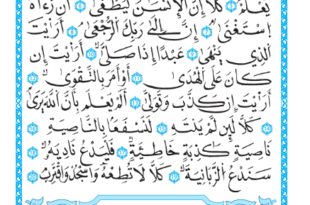 يَعْلَمْ ۝ كَلَّا إِنَّ الْإِنسَٰنَ لَيَطْغَىٰ ۝ أَن رَّءَاهُ
اسْتَغْنَىٰ ۝ إِنَّ إِلَىٰ رَبِّكَ الرُّجْعَىٰ ۝ أَرَءَيْتَ
الَّذِي يَنْهَىٰ ۝ عَبْدًا إِذَا صَلَّىٰ ۝ أَرَءَيْتَ إِن
كَانَ عَلَى الْهُدَىٰ ۝ أَوْ أَمَرَ بِالتَّقْوَىٰ ۝
أَرَءَيْتَ إِن كَذَّبَ وَتَوَلَّىٰ ۝ أَلَمْ يَعْلَم بِأَنَّ اللَّهَ يَرَىٰ
۝ كَلَّا لَئِن لَّمْ يَنتَهِ ۝ لَنَسْفَعًا بِالنَّاصِيَةِ
نَاصِيَةٍ كَٰذِبَةٍ خَاطِئَةٍ ۝ فَلْيَدْعُ نَادِيَهُ ۝
سَنَدْعُ الزَّبَانِيَةَ ۝ كَلَّا لَا تُطِعْهُ وَاسْجُدْ وَاقْتَرِب ۝